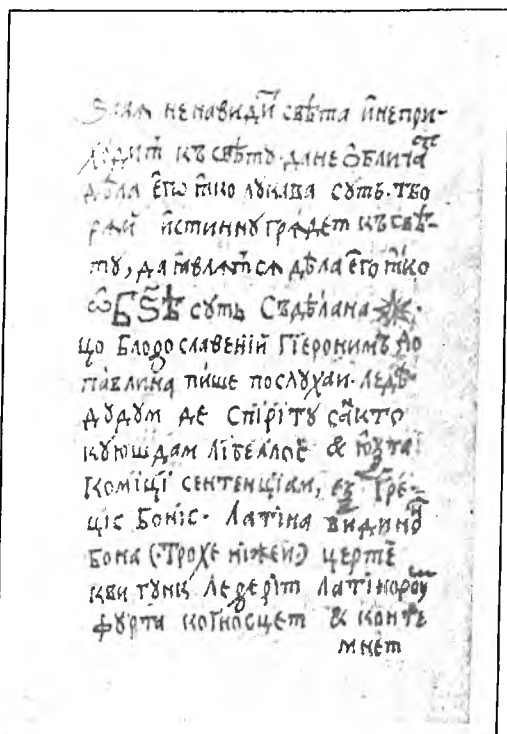 ненавиди свѣта и непри-
ходит къ свѣту. да не ѡбличат
дѣла его ѩко лукава суть. тво
рѧй истинну грѧдет къ свѣ-
ту, да ѩвлѧтсѧ дѣла его ѩко
ѡ БЅѢ суть Съдѣлана
що Благославеній Гіеронимъ до
павлина пише послухай. Ледѣ
дудум де Спіріту санкто
куюшдам лібеллос & юѯта
коміці сентенціам, еѯ Гре-
ціс боніс. Латіна види нон
бона (Трохе ніжей) церте
кви тунк легеріт Латінорум
фурта когносцет & конте
мнет